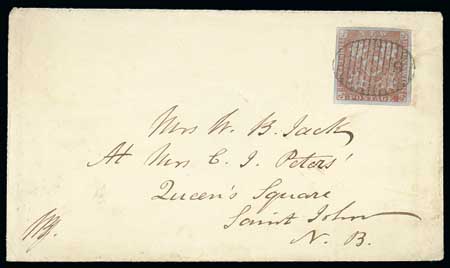 NEW
POSTAGE
Mrs W. B. Jack
At Mrs C. J. Peters'
Queen's Square
Saint John
N. B.